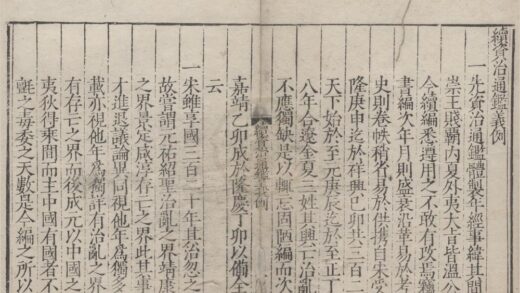 續資治通鑑義例
一先資治通鑑體製年經事緯其間
崇王賤覇內夏外夷大旨皆溫公
今續編悉遵用之不敢有改焉舊
書編次年月則盛衰沿革易於考
史則卷帙稍省易於供攜自宋
隆庚申迄於祥興己卯共三百二
天下始於至元庚辰迄於至正丁
八年合遼金夏三姓其興亡治亂
不應獨缺是以輒忘固陋編而次
續資治通鑑義例
嘉靖乙卯成於隆慶丁卯以備全
云
一宋雖享國三百二十年其治忽之
故嘗謂元祐紹聖治亂之界靖康
之界景定咸淳存亡之界此其事
才進退議論異同視他年爲獨多
載亦視他年爲獨詳有治亂之界
有存亡之界而後成元以中國之
夷狄得乘間而主中國有國者不
氈之毒委之天數是今編之所以